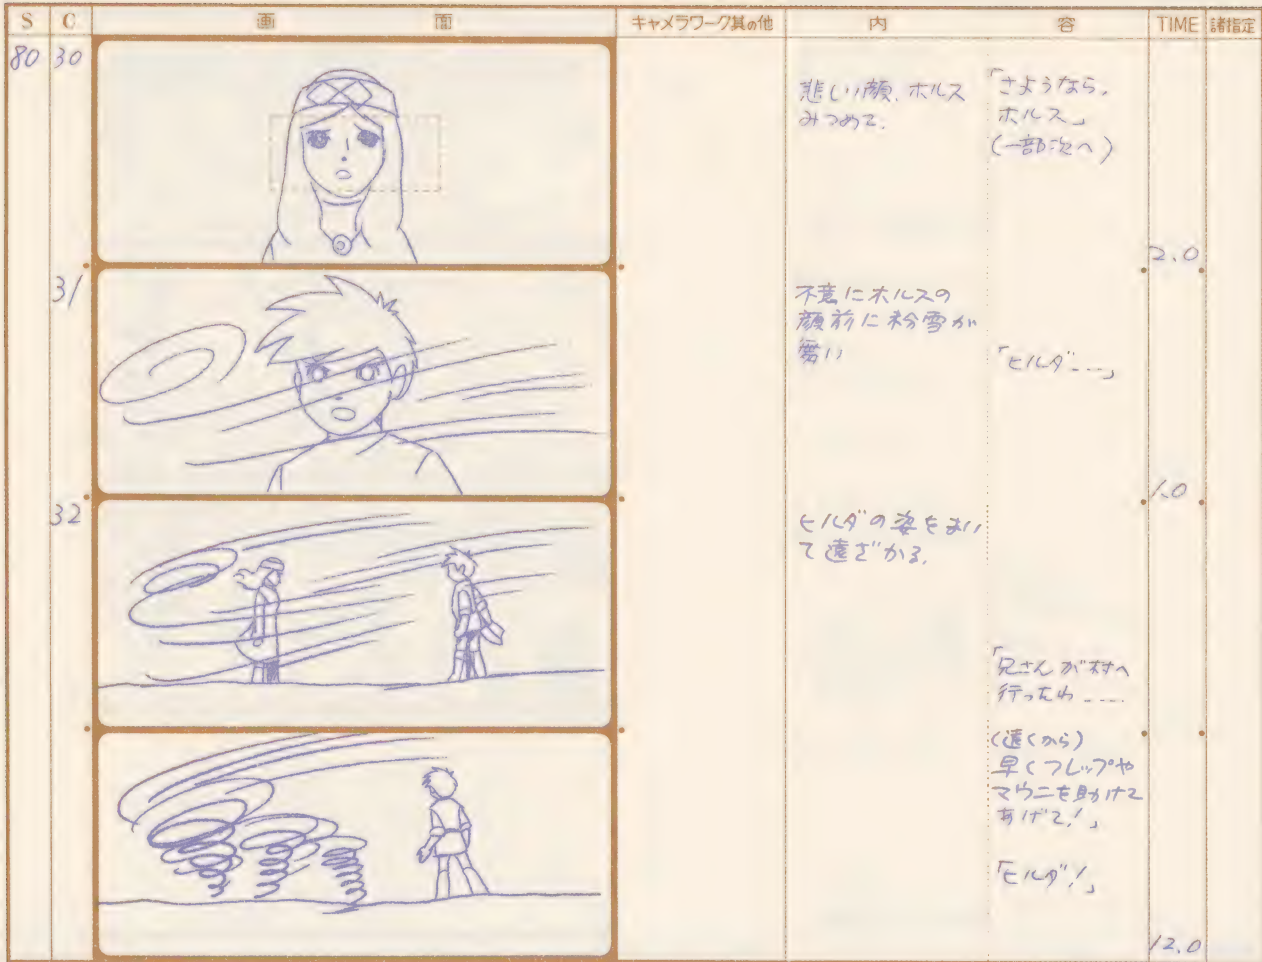 S C 画面 キャメラワーク其の他 内容 TIME 諸指定
80 30
悲しい顔、ホルス
みつめて。
「さようなら、
ホルス」
(一部次へ)
2.0
31
不意にホルスの
顔前に粉雪が
舞い
「ヒルダ---」
1.0
32
ヒルダの姿をまい
て遠ざかる。
「兄さんが村へ
行ったわ----
(遠くから)
早くフレップや
マウニを助けて
あげて!」
「ヒルダ!」
12.0